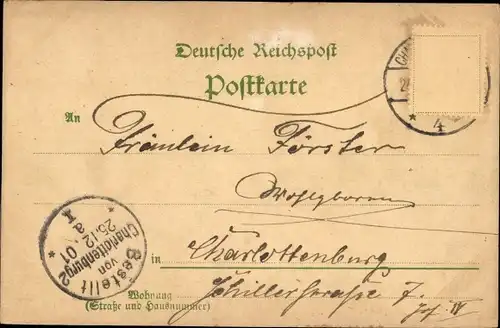 Deutsche Reichspost
Postkarte
CHA
2
4
An
Fräulein Förster
Wohlgeboren
in Charlottenburg
Schillerstraße 7.
IV
Wohnung
(Straße und Hausnummer)
Bestellt
von
Charlottenburg 2
26.12.01
a